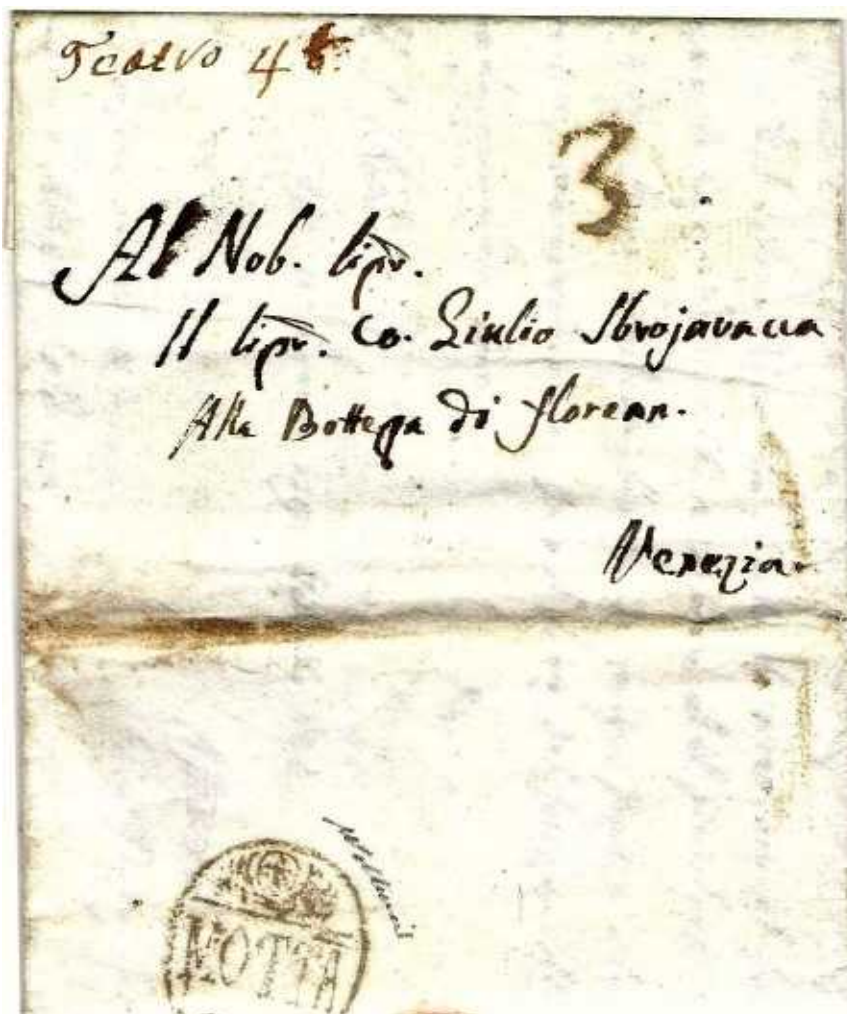 Teatro 4
3
Al Nob. Sigr.
Il Sigr. Co. Giulio Sbrojavacca
Alla Bottega di Florean.
Venezia.
MOTTA